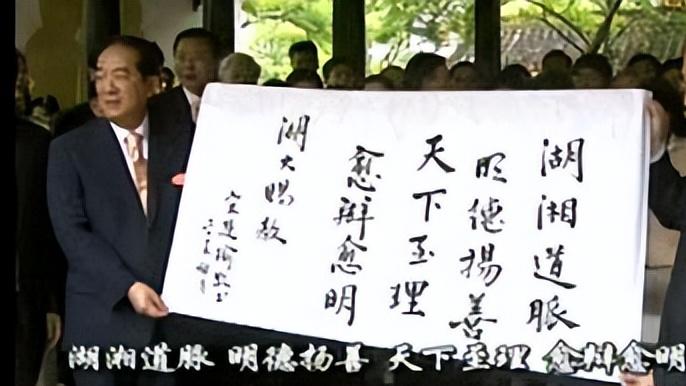 湖湘道脈
明德揚善
天下至理
愈辯愈明
湖大賜教
宋楚瑜敬書
湖湘道脉 明德扬善 天下至理 愈辩愈明